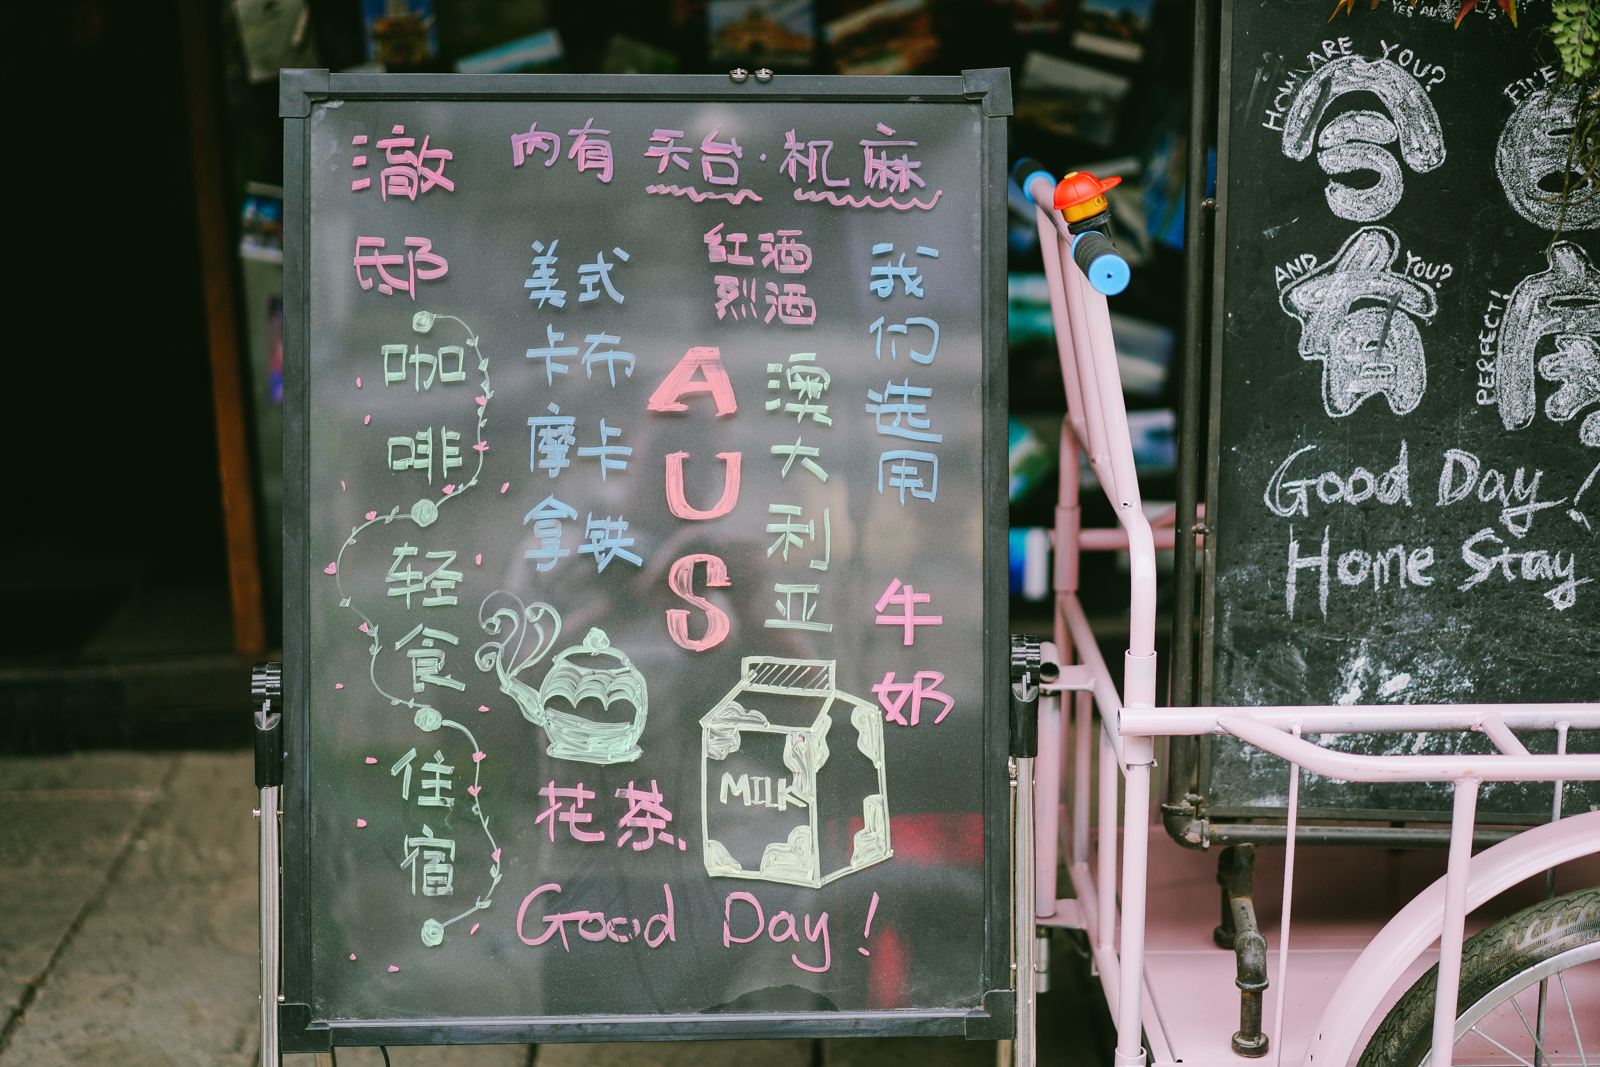 澈邸
咖啡
轻食
住宿
内有 天台·机麻
美式
卡布
摩卡
拿铁
红酒
烈酒
AUS
澳大利亚
我们选用
牛奶
MILK
花茶
Good Day!
HOW ARE YOU?
FINE
AND YOU?
PERFECT!
Good Day!
Home Stay